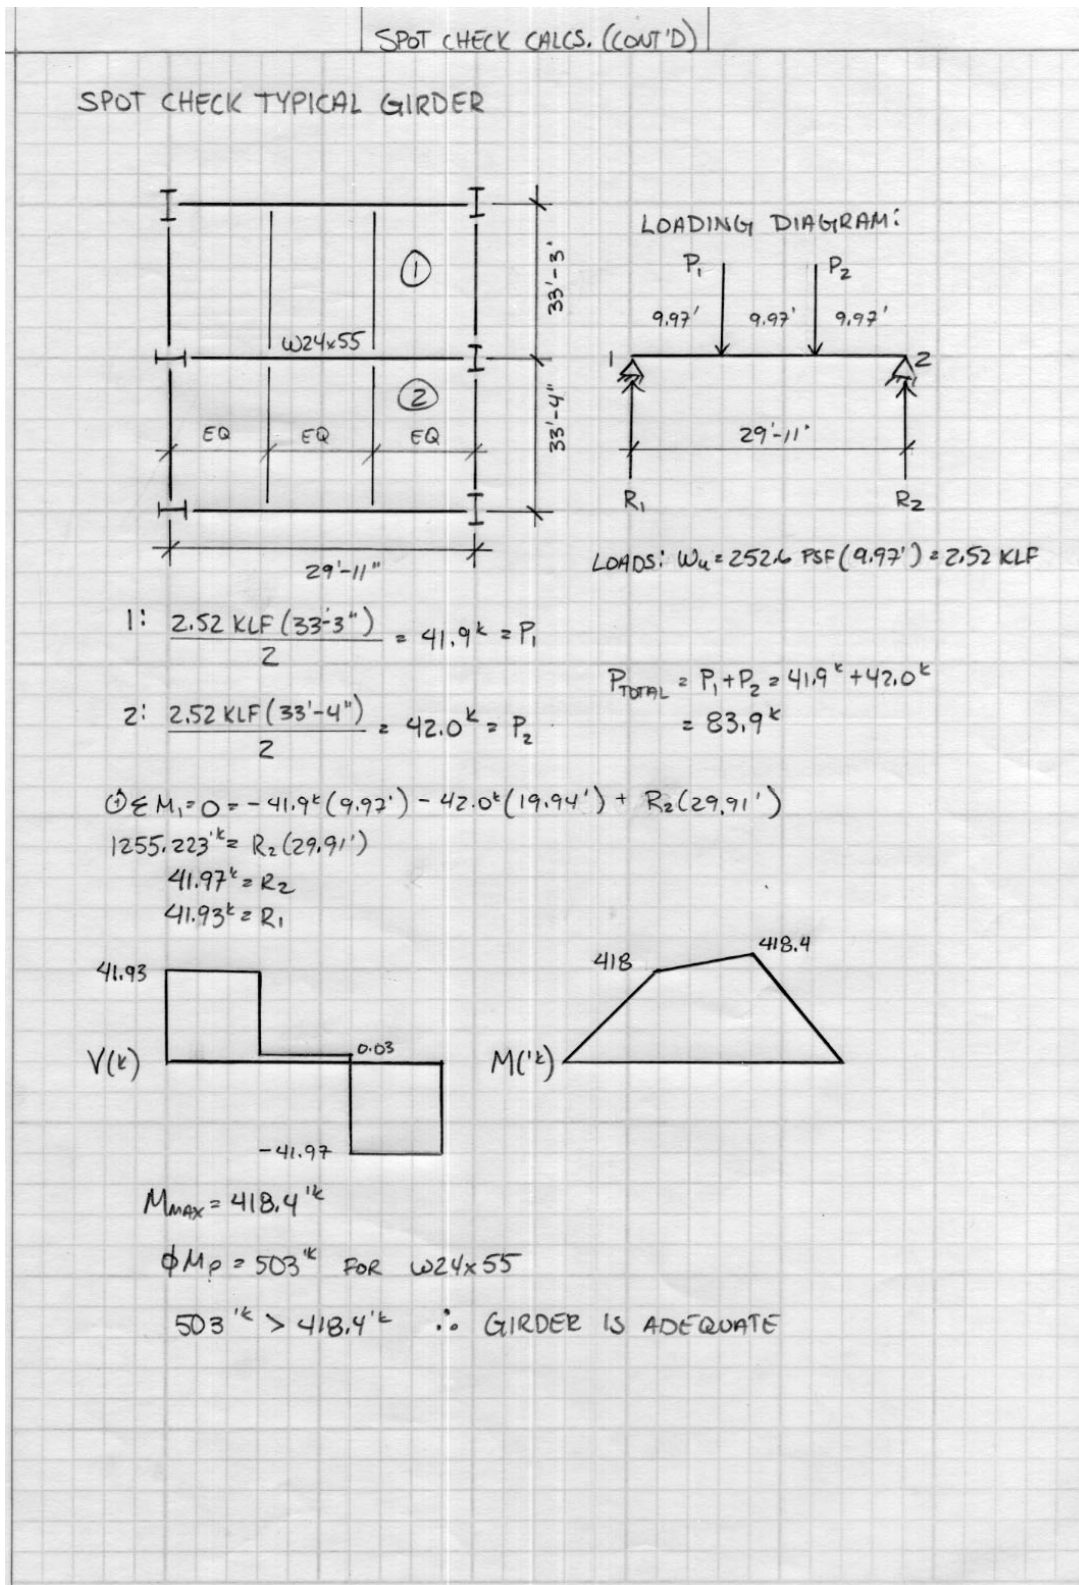 SPOT CHECK CALCS. (CONT'D)
SPOT CHECK TYPICAL GIRDER
1
W24x55
2
EQ EQ EQ
29'-11"
33'-3'
33'-4"
LOADING DIAGRAM:
P1 P2
9.97' 9.97' 9.97'
1 2
29'-11"
R1 R2
LOADS: Wu = 252.6 PSF (9.97') = 2.52 KLF
1: 2.52 KLF (33'-3") / 2 = 41.9k = P1
2: 2.52 KLF (33'-4") / 2 = 42.0k = P2
PTOTAL = P1 + P2 = 41.9k + 42.0k
= 83.9k
ΣM1 = 0 = -41.9k (9.97') - 42.0k (19.94') + R2 (29.91')
1255.223'k = R2 (29.91')
41.97k = R2
41.93k = R1
41.93
V(k)
0.03
-41.97
418
418.4
M('k)
MMAX = 418.4'k
φMp = 503'k FOR W24x55
503'k > 418.4'k ∴ GIRDER IS ADEQUATE